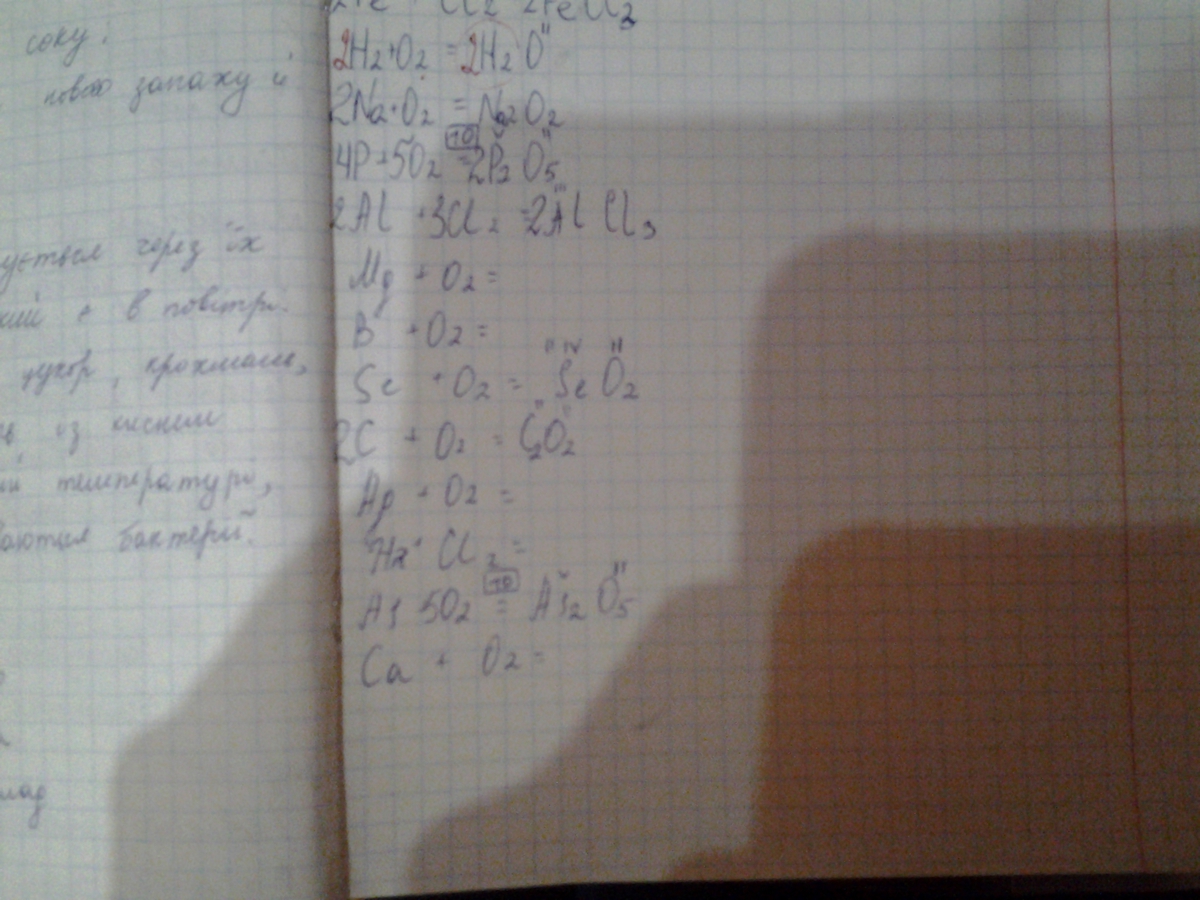 соку.
нового запаху й
через їх
є в повітрі.
цукор, крохмаль,
із киснем
температурі,
бактерії.
2Fe + Cl₂ 2FeCl₃
2H₂+O₂ = 2H₂O
2Na+O₂ = Na₂O₂
10
4P+5O₂ = 2P₂O₅
2Al + 3Cl₂ = 2AlCl₃
Mg + O₂ =
B + O₂ =
Se + O₂ = SeO₂
2C + O₂ = C₂O₂
Ag + O₂ =
H₂ + Cl₂ =
10
As 5O₂ = As₂O₅
Ca + O₂ =